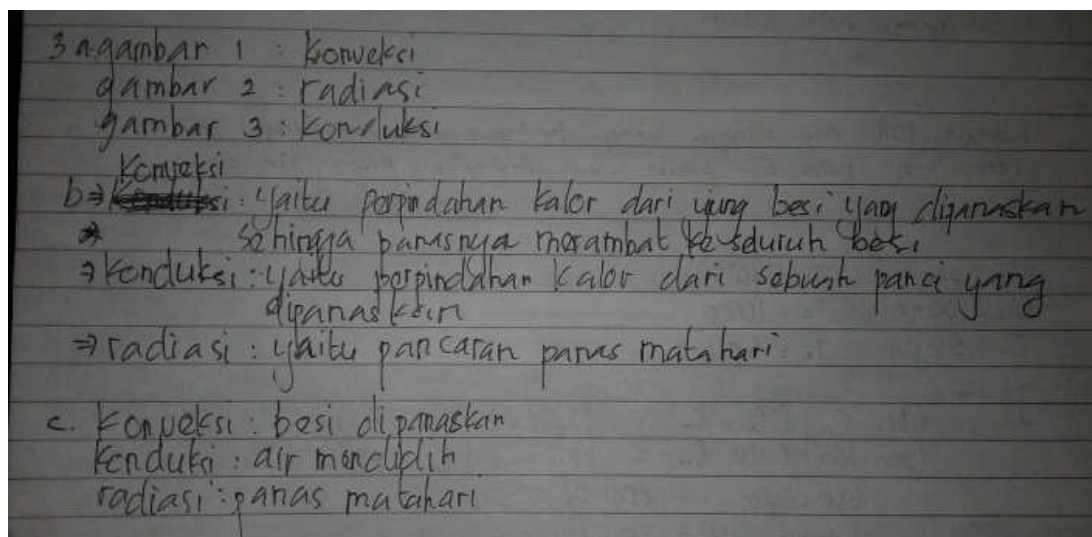 3 a. gambar 1 : Konveksi
gambar 2 : radiasi
gambar 3 : Konduksi
Konveksi
b ⇒ : Yaitu perpindahan kalor dari ujung besi yang dipanaskan
sehingga panasnya merambat ke seluruh besi
⇒ Konduksi : yaitu perpindahan kalor dari sebuah panci yang
dipanaskan
⇒ radiasi : yaitu pancaran panas matahari
c. Konveksi : besi dipanaskan
Konduksi : air mendidih
radiasi : panas matahari